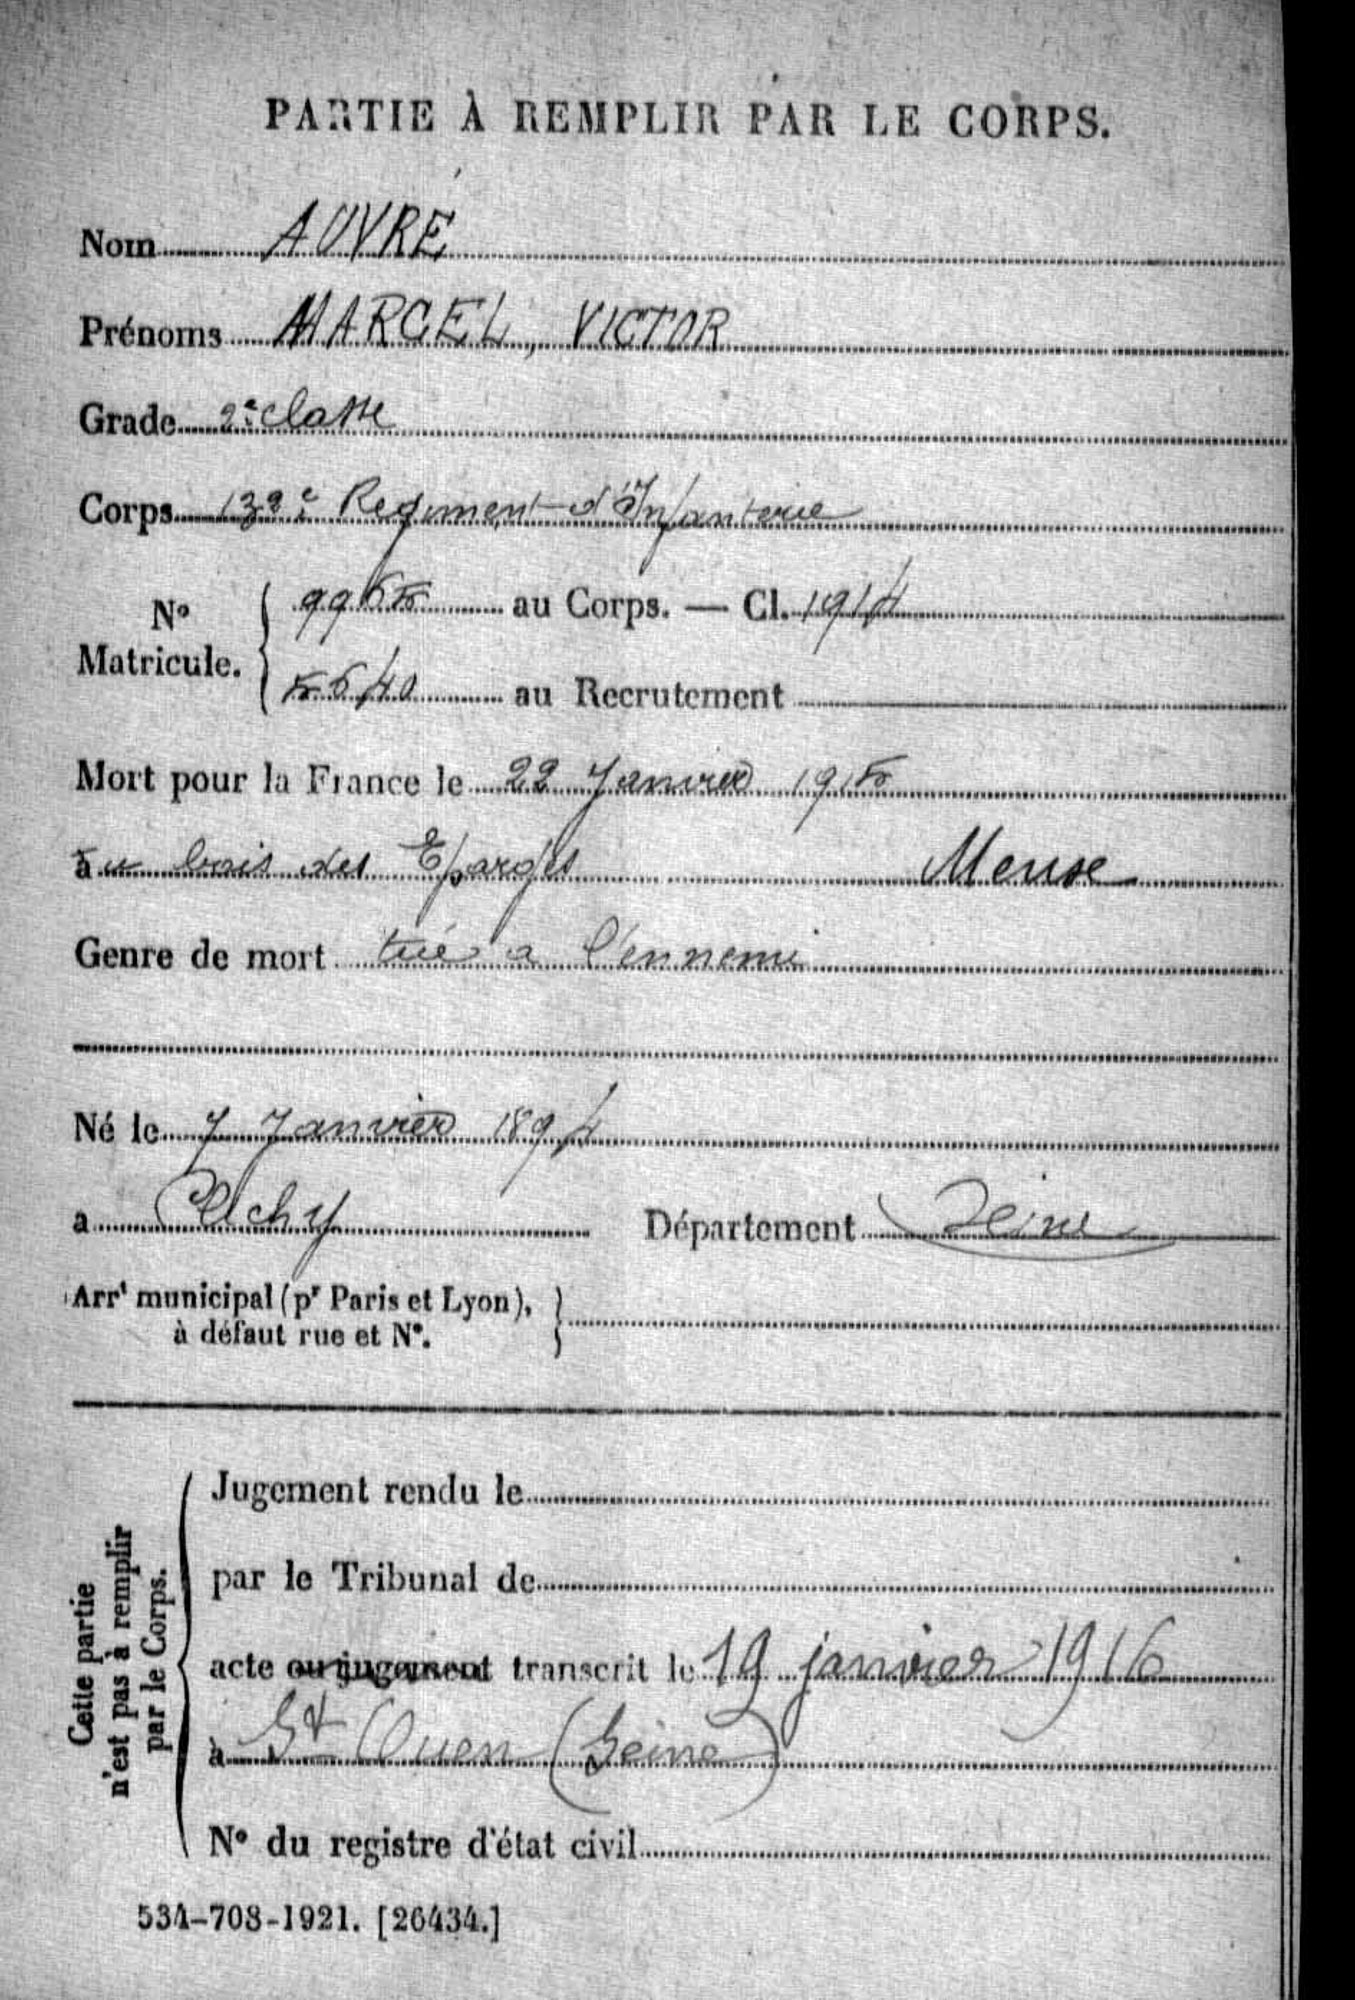 PARTIE À REMPLIR PAR LE CORPS.
Nom AUVRÉ
Prénoms MARCEL, VICTOR
Grade 2e classe
Corps 132e Regiment d'Infanterie
No Matricule. 9955 au Corps. — Cl. 1914
5640 au Recrutement
Mort pour la France le 22 Janvier 1915
au bois des Eparges Meuse
Genre de mort tué a l'ennemi
Né le 7 Janvier 1894
a Clichy Département Seine
Arrt municipal (pr Paris et Lyon),
à défaut rue et No.
Cette partie
n'est pas à remplir
par le Corps.
Jugement rendu le
par le Tribunal de
acte ou jugement transcrit le 19 janvier 1916
à St Ouen (Seine)
No du registre d'état civil
534-708-1921. [26434.]